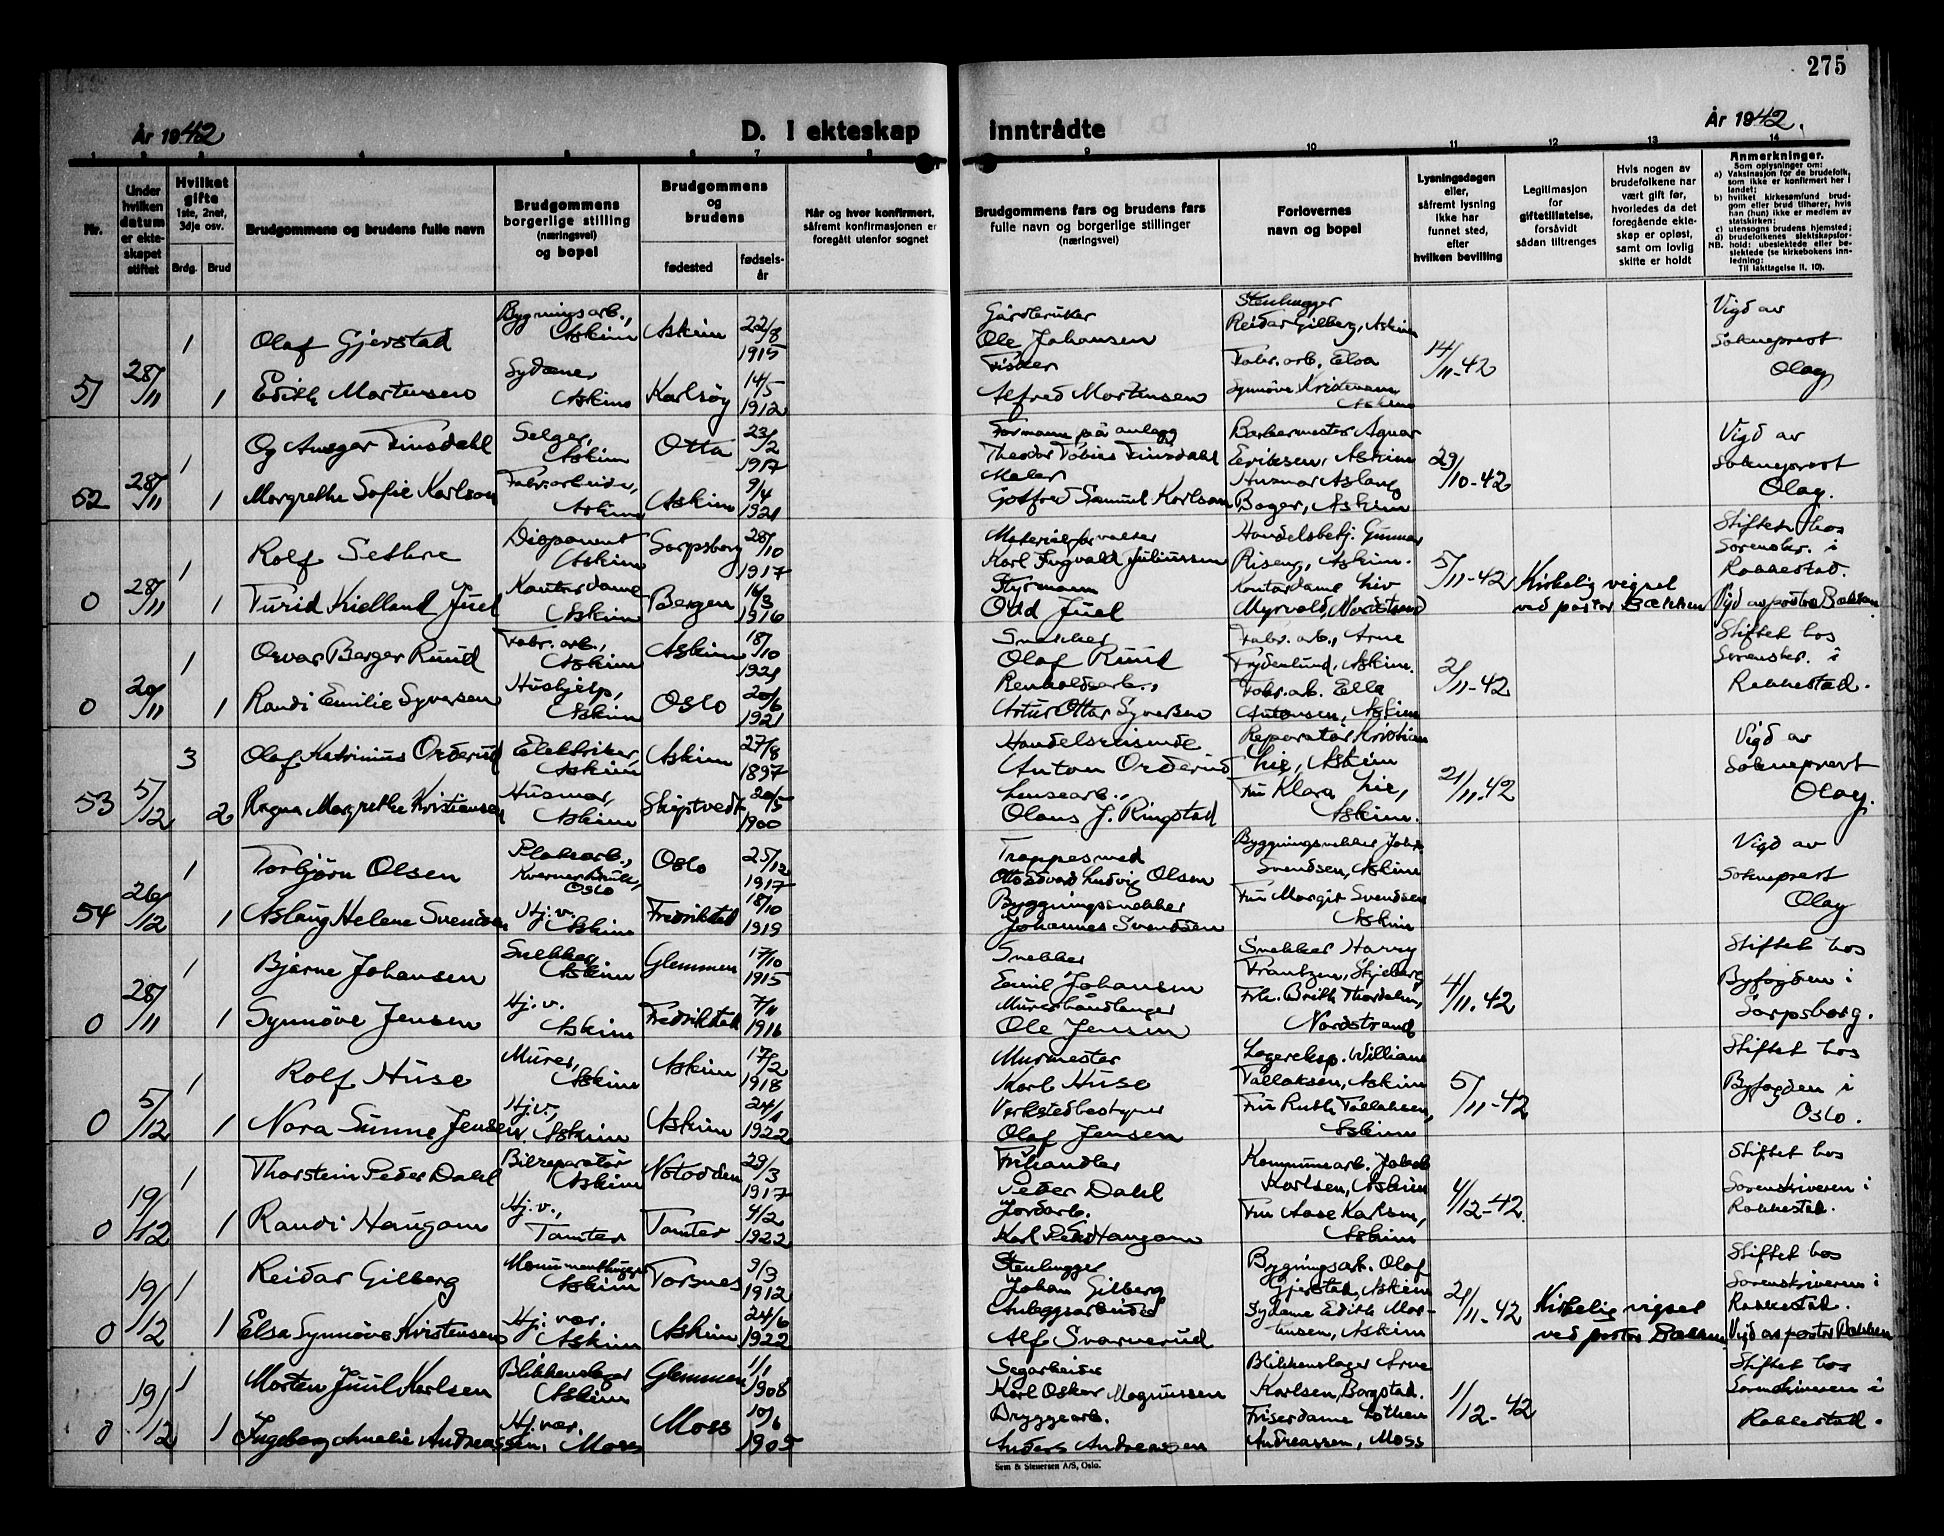 275
År 1942
D. I ekteskap
inntrådte
År 1942.
1 2 3 4 5 6 7 8 9 10 11 12 13 14
Nr.
Under
hvilken
datum
er ekte-
skapet
stiftet
Hvilket
gifte
1ste, 2net,
3dje osv.
Brdg.
Brud
Brudgommens og brudens fulle navn
Brudgommens
borgerlige stilling
(næringsvei)
og bopel
Brudgommens
og
brudens
fødested
fødsels-
år
Når og hvor konfirmert,
såfremt konfirmasjonen er
foregått utenfor sognet
Brudgommens fars og brudens fars
fulle navn og borgerlige stillinger
(næringsvei)
Forlovernes
navn og bopel
Lysningsdagen
eller,
såfremt lysning
ikke har
funnet sted,
efter
hvilken bevilling
Legitimasjon
for
giftetillatelse,
forsåvidt
sådan tiltrenges
Hvis nogen av
brudefolkene har
vært gift før,
hvorledes da det
foregående ekte-
skap er opløst,
samt om lovlig
skifte er holdt
Anmerkninger.
Som oplysninger om:
a) Vaksinasjon for de brudefolk,
som ikke er konfirmert her i
landet;
b) hvilket kirkesamfund brud-
gom eller brud tilhører, hvis
han (hun) ikke er medlem av
statskirken;
c) utensogns brudens hjemsted;
d) brudefolkenes slektskapsfor-
NB. hold: ubeslektede eller be-
slektede (se kirkebokens inn-
ledning:
Til iakttagelse II, 10).
51 28/11
1 Olaf Gjerstad Bygningsarb., Askim Askim 22/8 1915 Gårdbruker Ole Johansen Stenhugger Reidar Gilberg, Askim
1 Edith Mortensen Sydame Askim Karlsøy 14/5 1912 Fisker Alfred Mortensen Fabr.arb. Elsa Synnøve Kristensen Askim 14/11-42 Vigd av Sokneprest Olay
52 28/11
1 Og Ansgar Tinsdahl Selger, Askim Otta 23/2 1917 Formann på anlegg Theodor Tobias Tinsdahl Barbermester Agnar Eriksen, Askim
1 Margrethe Sofie Karlson Fabr.arbeider, Askim Askim 9/4 1921 Maler Gotfred Samuel Karlson Husmor Aslaug Bøger, Askim 29/10-42 Vigd av Sokneprest Olay.
0 28/11
1 Rolf Sethre Disponent Askim Sarpsborg 28/10 1917 Materialforvalter Karl Ingvald Juliussen Handelsbetj. Gunnar Riseng, Askim.
1 Turid Kielland Juel Kontordame Askim Bergen 16/3 1916 Styrmann Odd Juel Kontordame Liv Myrvold, Nordstrand 5/11-42 Kirkelig vigsel ved pastor Bækken Stiftet hos Sorenskr. i Rakkestad. Vigd av pastor Bækken
0 20/11
1 Orvar Berger Ruud Fabr. arb., Askim Askim 18/10 1921 Snekker Olaf Ruud Fabr. arb., Arne Frydenlund, Askim.
1 Randi Emilie Syversen Hushjelp, Askim Oslo 20/6 1921 Renholdsarb., Artur Ottar Syversen Fabr.arb. Ella Antonsen, Askim 2/11-42 Stiftet hos Sorenskr. i Rakkestad.
53 5/12
3 Olaf Katrinius Orderud Elektriker, Askim Askim 27/8 1897 Handelsreisende Anton Orderud Reparatør Kristian Lie, Askim
2 Ragna Margrethe Kristiansen Husmor, Askim Skiptvedt 20/5 1900 Lensearb., Olaus J. Ringstad Fru Klara Lie, Askim. 21/11-42 Vigd av Sokneprest Olay.
54 26/12
1 Torbjørn Olsen Platearb., Kværner Bruk, Oslo Oslo 25/12 1917 Trappesmed Otto Edvard Ludvig Olsen Byggningssnekker Johs. Svendsen, Askim
1 Aslaug Helene Svendsen Hj.v. Askim Fredrikstad 18/10 1919 Byggningssnekker Johannes Svendsen Fru Margit Svendsen Askim Vigd av Sokneprest Olay
0 28/11
1 Bjarne Johansen Snekker Askim Glemmen 17/10 1915 Snekker Emil Johansen Snekker Harry Frantzen, Skjeberg
1 Synnøve Jensen Hj.v. Askim Fredrikstad 7/11 1916 Murerhåndlanger Ole Jensen Frk. Brith Thordalen, Nordstrand 4/11-42 Stiftet hos Byfogden i Sarpsborg.
0 5/12
1 Rolf Huse Murer, Askim Askim 17/2 1918 Murmester Karl Huse Lagereksp. William Tallaksen, Askim
1 Nora Sunne Jensen Hj.v., Askim Askim 24/1 1922 Verkstedbestyrer Olaf Jensen Fru Ruth Tallaksen, Askim 5/11-42 Stiftet hos Byfogden i Oslo.
0 19/12
1 Thorstein Peder Dahl Bilreparatør Askim Notodden 29/3 1917 Frihandler Peder Dahl Kommunearb. Jakob Karlsen, Askim
1 Randi Haugam Hj.v., Tomter Tomter 4/2 1922 Jordarb. Karl Peder Haugam Fru Aase Karlsen, Askim 1/12-42. Stiftet hos Sorenskriveren i Rakkestad.
0 19/12
1 Reidar Gilberg Monumenthugger Askim Torsnes 9/3 1912 Stenhugger Johan Gilberg Bygningsarb. Olaf Gjerstad, Askim
1 Elsa Synnøve Kristensen Hj. vær. Askim Askim 24/6 1922 Anleggsarbeider Alf Svarverud Sydame Edith Mortensen, Askim 21/11-42 Kirkelig vigsel ved pastor Bækken Stiftet hos Sorenskriveren i Rakkestad. Vigd av pastor Bækken
0 19/12
1 Morten Juul Karlsen Blikkenslager Askim Glemmen 1/1 1908 Sagarbeider Karl Oskar Magnussen Blikkenslager Arne Karlsen, Borgstad.
1 Ingeborg Amalie Andreassen Hj.vær. Moss Moss 10/6 1905 Bryggearb. Anders Andreassen Friserdame Lothen Andreassen, Moss 1/12-42 Stiftet hos Sorenskriveren i Rakkestad.
Sem & Stenersen A/S, Oslo.